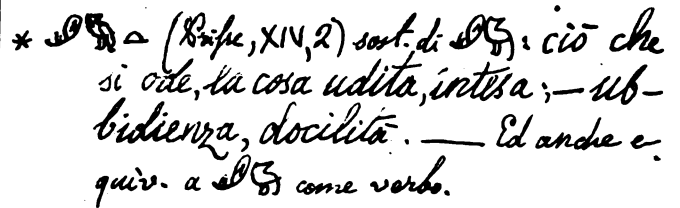 * 𓄔𓅓 𓏏 (Prisse, XIV, 2) sost. di 𓄔𓅓: ciò che
si ode, la cosa udita, intesa; — ub-
bidienza, docilità. — Ed anche e-
quiv. a 𓄔𓅓 come verbo.